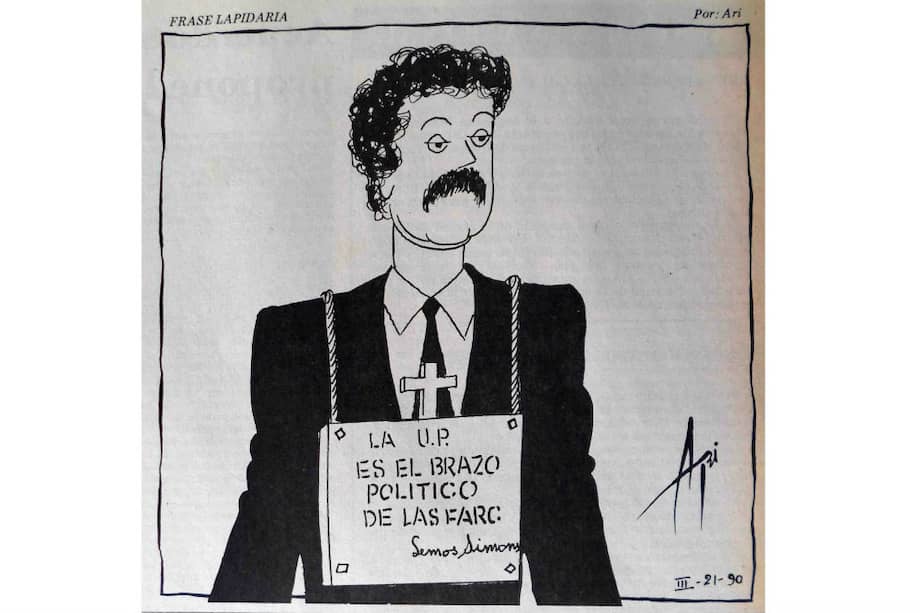 FRASE LAPIDARIA
Por: Ari
LA U.P.
ES EL BRAZO
POLITICO
DE LAS FARC
Lemos Simons
Ari
III-21-90